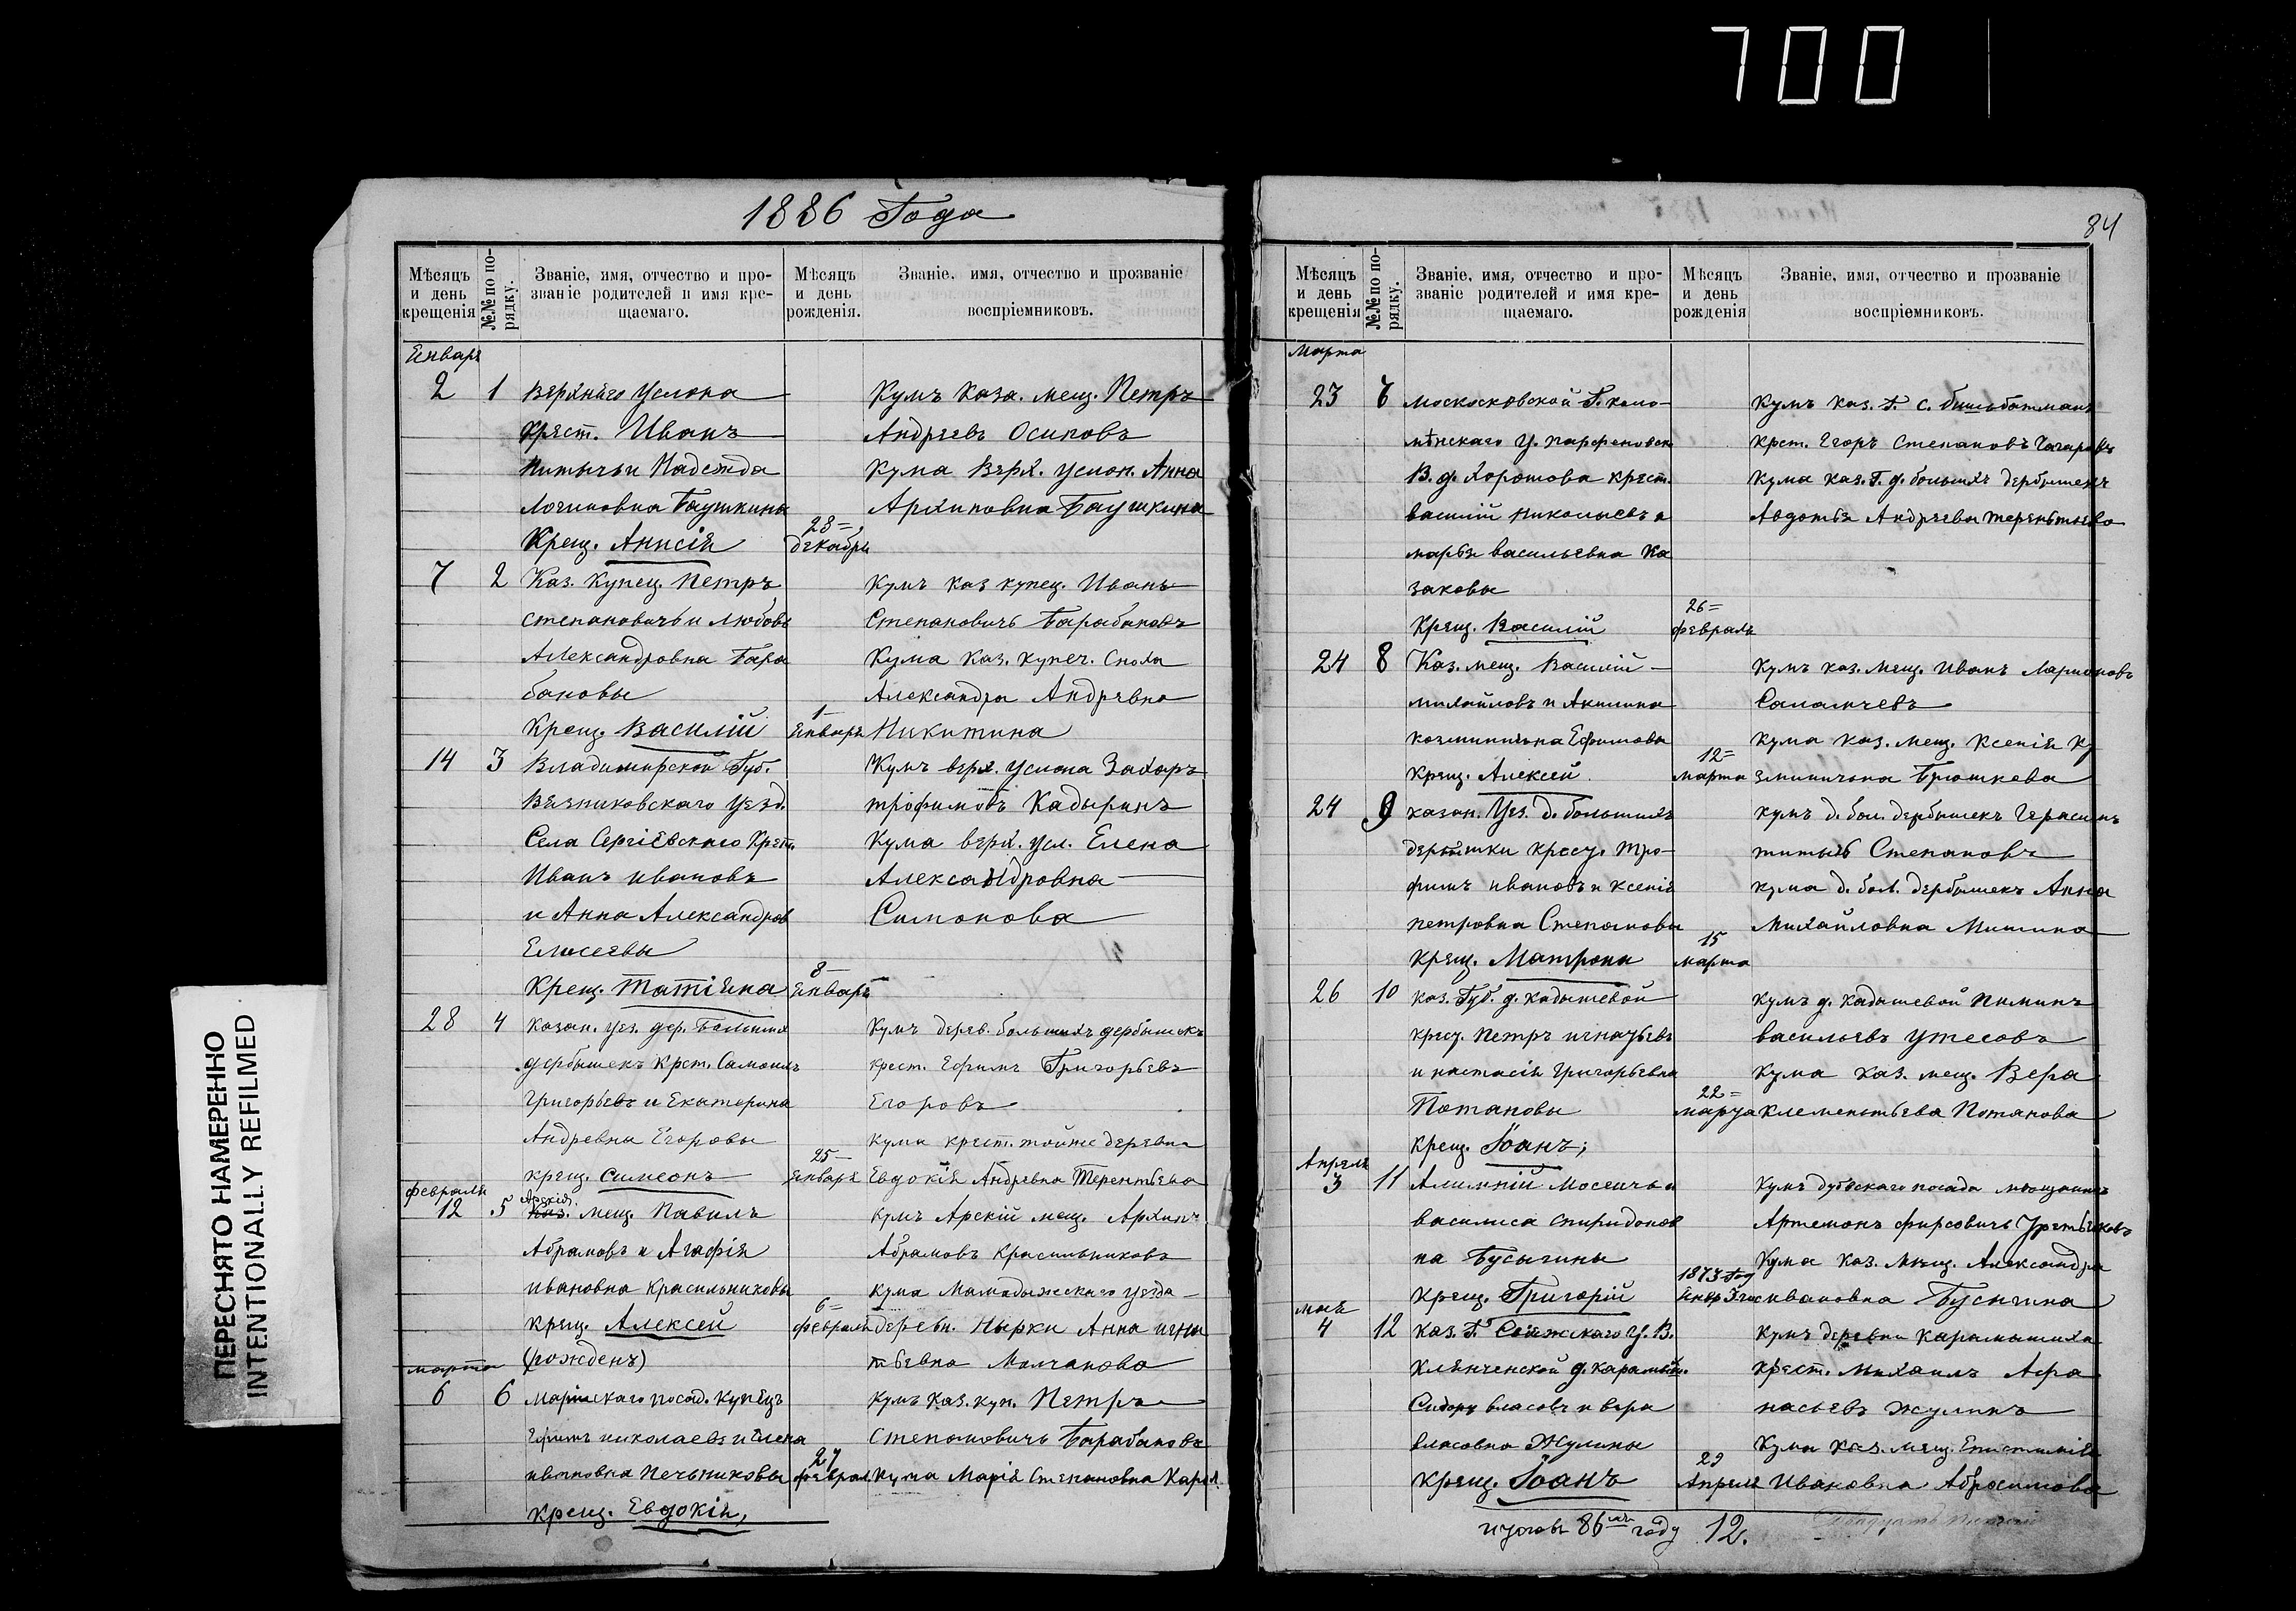 700
ПЕРЕСНЯТО НАМЕРЕННО
INTENTIONALLY REFILMED
1886 Года
Мѣсяцъ и день крещенія
№№ по порядку.
Званіе, имя, отчество и прозваніе родителей и имя крещаемаго.
Мѣсяцъ и день рожденія.
Званіе, имя, отчество и прозваніе воспріемниковъ.
Енваря
2 1 Верхняго Услона Кумъ Каза. мещ. Петръ
Крест. Иванъ Андреевъ Осиповъ
Никитичъ и Надежда Кума Верх. услон. Анна
Логиновна Баушкина Архиповна Баушкина
Крещ. Анисія 28 декабря
7 2 Каз. Купец. Петръ Кумъ каз купец. Иванъ
Степановичъ и Любовь Степановичъ Барабановъ
Александровна Бара Кума Каз. купеч. Сноха
бановы Александра Андревна
Крещ. Василій 1 Енваря Никитина
14 3 Владимирской Губ. Кумъ верх. услона Захаръ
Вязниковскаго уезд. трофимовъ Кадыринъ
Села Сергіевскаго Крест. Кума верх. усл. Елена
Иванъ ивановъ Александровна
и Анна Александров Симонова
Елисеевы
Крещ. Татіяна 8 Енваря
28 4 Казан. уез. дер. Большихъ Кумъ дерев. большихъ дербышекъ
дербышекъ Крст. Самоилъ крест. Ефимъ Григорьевъ
Григорьевъ и Екатерина Егоровъ
Андревна Егоровы кума крест. тойже деревни
крещ. Симеонъ 25 Енваря Евдокія Андревна Терентьева
февраля
12 5 Арскій Каз. мещ. Павилъ кумъ Арскій мещ. Архипъ
Абрамовъ и Агафія Абрамовъ Красильниковъ
ивановна Красильниковы кума Мамадыжскаго уезда
крещ. Алексей 6 февраля деревн. Нырки Анна игна
(рожденъ) тьевна Молчанова
марта
6 6 Маріискаго посад. Купецъ кумъ Каз. куп. Петръ
Ефимъ николаевъ и Елена Степановичъ Барабановъ
ивановна Печьниковы 27 феврал. кума Марія Степановна Карел.
крещ. Евдокія,
84
Мѣсяцъ и день крещенія
№№ по порядку.
Званіе, имя, отчество и прозваніе родителей и имя крещаемаго.
Мѣсяцъ и день рожденія
Званіе, имя, отчество и прозваніе воспріемниковъ.
Марта
23 7 москосковской Г. коло- Кумъ каз. Г. с.
мѣнскаго У. парфеновск крст. Егоръ Степановъ Чагаровъ
В. д. Хорошова крест. кума каз. Г. д. большихъ дербышекъ
василій николаевъ и Авдотья Андреева терентьева
марья васильевна Ка
заковы
Крещ. Василій 26 февраля
24 8 Каз. мещ. Василій кумъ каз. мещ. Иванъ Ларионовъ
михайловъ и Акилина
козминична Ефимовы кума каз. мещ. Ксенія Ку
крещ. Алексей 12 марта зминична Брюшкева
24 9 казан. Уез. д. большихъ кумъ д. бол. дербышекъ Герасимъ
дербышки крест. Тро- титычъ Степановъ
фимъ ивановъ и Ксенія кума д. бол. дербышекъ Анна
петровна Степановы Михайловна Мишина
крещ. Матрона 15 марта
26 10 каз. Губ. д. кадышевой кумъ д. кадышевой Пиминъ
крест. Петръ игнатьевъ васильевъ Утесовъ
и настасія григорьевна кума каз. мещ. Вера
Потаповы 22 марта клеменьтьева Потапова
крещ. Іоанъ;
Апреля
3 11 Алимпій Мосеичъ и кумъ дубвскаго посада мещанинъ
василиса спиридонов Артемонъ фирсовичъ
на Бусыгины Кума Каз. мещ. Александра
крещ. Григорій 1873 год Генвр ивановна Бусыгина
маія
4 12 Каз. Г. Свияжскаго У. В. кумъ деревни карамышиха
Клянченской д. карамыш. крест. Михаилъ Афа
Сидоръ власовъ и вера насьевъ Жулинъ
власовна Жулины Кума каз. мещ. Епистимія
крещ. Іоанъ 29 Апреля Ивановна Абросимова
итого въ 86мъ году 12.